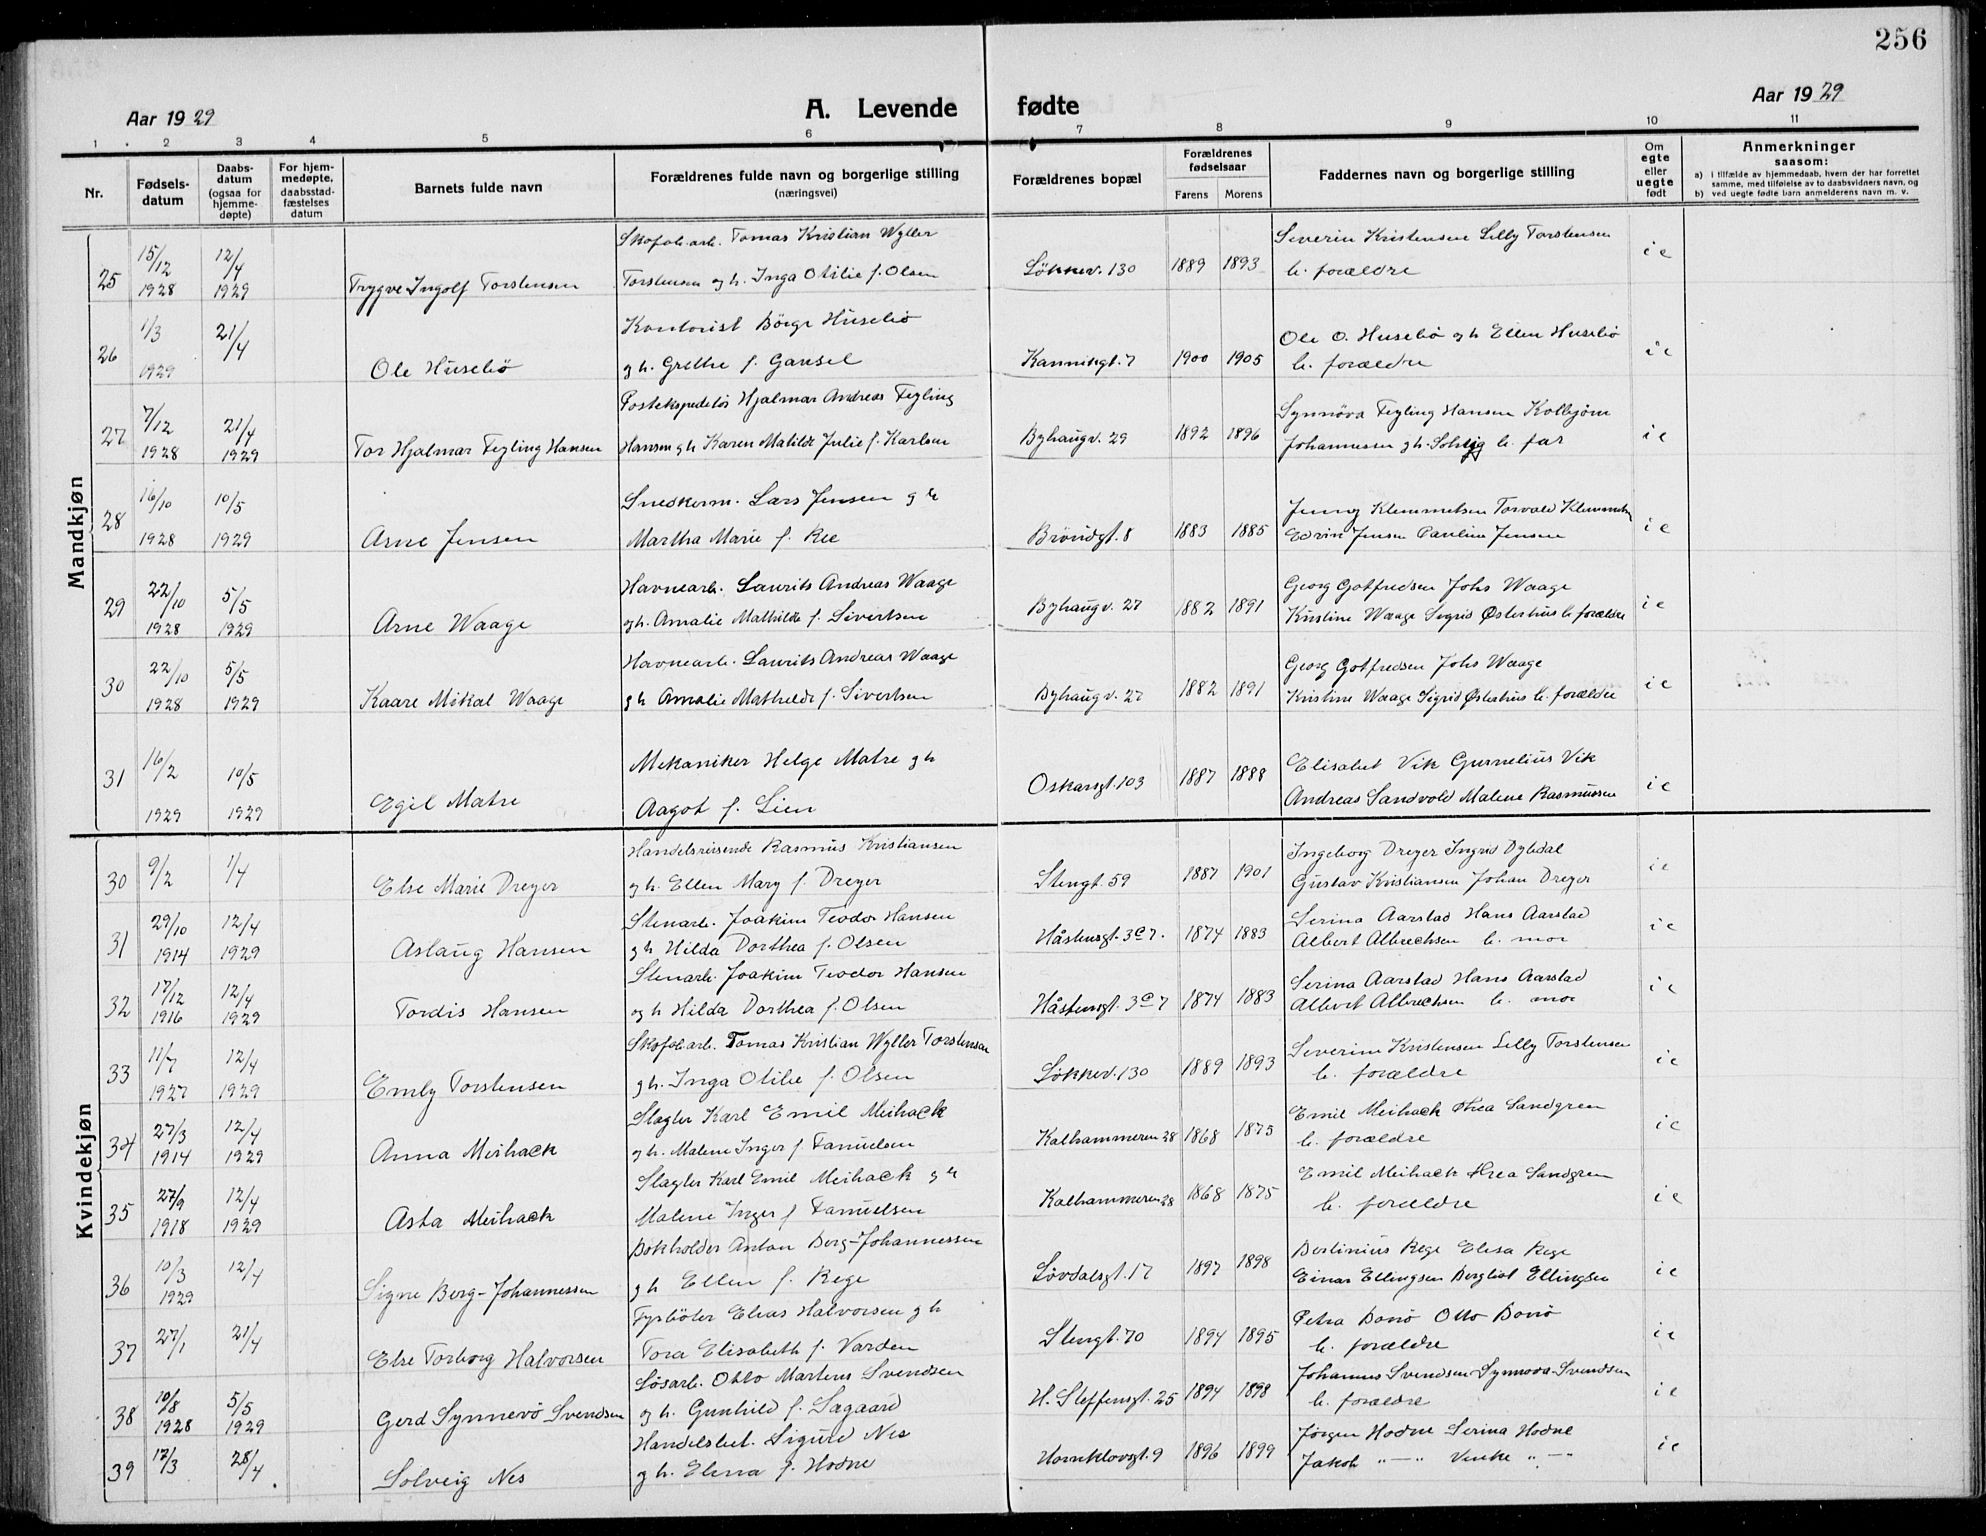 256
Aar 1929
A. Levende fødte
Aar 1929
1 2 3 4 5 6 7 8 9 10 11
Nr.
Fødsels-datum
Daabs-datum (ogsaa for hjemme-døpte)
For hjem-medøpte, daabsstad-fæstelses datum
Barnets fulde navn
Forældrenes fulde navn og borgerlige stilling (næringsvei)
Forældrenes bopæl
Forældrenes fødselsaar
Farens Morens
Faddernes navn og borgerlige stilling
Om egte eller uegte født
Anmerkninger saasom:
a) i tilfælde av hjemmedaab, hvem der har forrettet samme, med tilføielse av to daabsvidners navn, og
b) ved uegte fødte barn anmelderens navn m. v.
Mandkjøn
25 15/12 1928 12/4 1929 Trygve Ingolf Torstensen Skofab.arb. Tomas Kristian Wyller Torstensen og h. Inga Otilie f. Olsen Løkkev. 130 1889 1893 Severin Kristensen Lelly Torstensen b. forældre i e
26 1/3 1929 21/4 Ole Husebø Kontorist Börge Husebø g h. Grethe f. Gausel Kannikgt. 7 1900 1905 Ole O. Husebø g h Ellen Husebø b. forældre i e
27 7/12 1928 21/4 1929 Tor Hjalmar Tegling Hansen Postekspeditör Hjalmar Andreas Tegling Hansen g h Karen Matilde Julie f. Karlsen Byhaugv. 29 1892 1896 Synnöva Tegling Hansen Kolbjörn Johannessen g h. Solveig b. far i e
28 16/10 1928 10/5 1929 Arne Jensen Snedkerm. Lars Jensen g h Martha Marie f. Ree Bröndgt. 8 1883 1885 Jenny Klemmetsen Torvald Klemmets Edvin Jensen Pauline Jensen i e
29 22/10 1928 5/5 1929 Arne Waage Havnearb. Laurits Andreas Waage og h. Amalie Mathilde f. Sivertsen Byhaugv. 27 1882 1891 Georg Gotfredsen Johs Waage Kristine Waage Sigrid Østerhus b. forældre i e
30 22/10 1928 5/5 1929 Kaare Mikal Waage Havnearb. Laurits Andreas Waage g h Amalie Mathilde f. Sivertsen Byhaugv. 27 1882 1891 Georg Gotfredsen Johs Waage Kristine Waage Sigrid Østerhus b. forældre i e
31 16/2 1929 10/5 1929 Egil Matre Mekaniker Helge Matre g h Aagot f. Lien Oskarsgt. 103 1887 1888 Elisabet Vik Gurnelius Vik Andreas Sandvold Malene Rasmussen i e
Kvindekjøn
30 9/2 1/4 Else Marie Dreyer Handelsreisende Rasmus Kristiansen g h. Ellen Mary f. Dreyer Stengt. 59 1887 1901 Ingeborg Dreyer Ingrid Dybdal Gustav Kristiansen Johan Dreyer i e
31 29/10 1914 12/4 1929 Aslaug Hansen Stenarb. Joakim Teodor Hansen g h Hilda Dorthea f. Olsen Håstensgt. 3 c 7. 1874 1883 Serina Aarstad Hans Aarstad Albert Albrechsen b. mor i e
32 17/12 1916 12/4 1929 Tordis Hansen Stenarb. Joakim Teodor Hansen og h Hilda Dorthea f. Olsen Håstensgt. 3 c 7 1874 1883 Serina Aarstad Hans Aarstad Albert Albrechsen b. mor i e
33 11/7 1927 12/4 1929 Emly Torstensen Skofab.arb. Tomas Kristian Wyller Torstensen g h. Inga Otilie f. Olsen Løkkev. 130 1889 1893 Severin Kristensen Lelly Torstensen b. forældre i e
34 27/3 1914 12/4 1929 Anna Meihack Slagter Karl Emil Meihack og h. Malene Inger f. Tanuelsen Kalhammeren 28 1868 1875 Emil Meihack Thea Sandgren b. forældre i e
35 27/9 1918 12/4 1929 Asta Meihack Slagter Karl Emil Meihack g h Malene Inger f Tanuelsen Kalhammeren 28 1868 1875 Emil Meihack Thea Sandgren b. forældre i e
36 10/3 1929 12/4 Signe Berg-Johannessen Bokholder Anton Berg-Johannessen g h Ellen f. Rege Lövdalsgt. 17 1897 1898 Bertinius Rege Elisa Rege Einar Ellingsen Bergliot Ellingsen i e
37 27/1 21/4 Else Torborg Halvorsen Fyrböter Elias Halvorsen g h Tora Elisabeth f. Varden Stengt. 70 1894 1895 Petra Bonö Otto Bonö b. forældre i e
38 10/8 1928 5/5 1929 Gerd Synnevö Svendsen Løsarb. Otto Martens Svendsen og h. Gunhild f. Sagaard H. Steffensgt. 25 1894 1898 Johannes Svendsen Synnova Svendsen b. forældre i e
39 17/3 28/4 Solveig Nes Handelsbet. Sigurd Nes g h. Elena f. Hodne Hornklovsgt. 9 1896 1899 Jörgen Hodne Serina Hodne Jakob " — " Venke " — i e